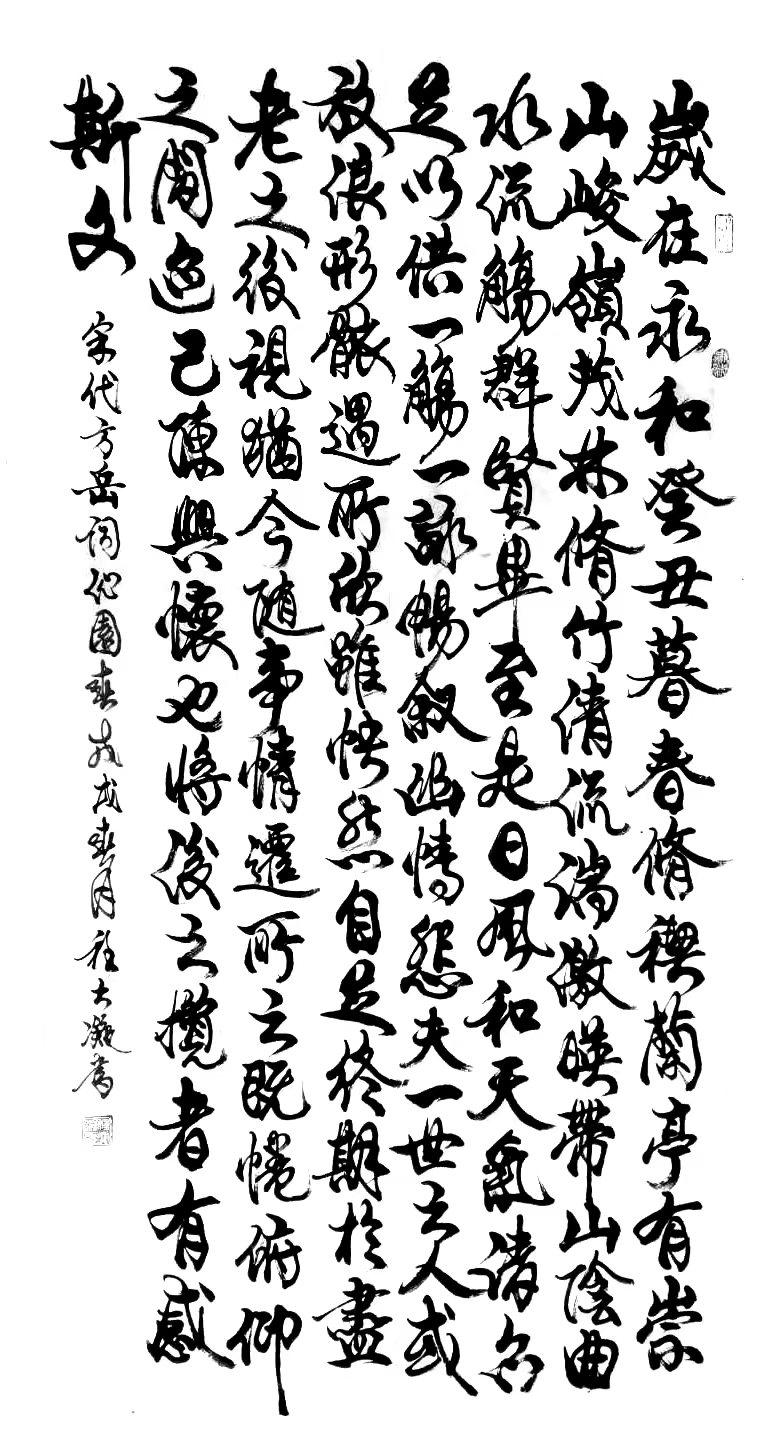 歲在永和癸丑暮春脩禊蘭亭有崇
山峻嶺茂林脩竹清流湍激暎帶山陰曲
水流觴群賢畢至是日風和天氣清亦
足以供一觴一詠暢叙幽情悲夫一世之人或
放浪形骸遇所欣雖快然自足終期於盡
老之後視猶今隨事情遷所之既惓俯仰
之間迹已陳興懷也將後之攬者有感
斯文
宋代方岳詞沁園春戌春月程大凝書